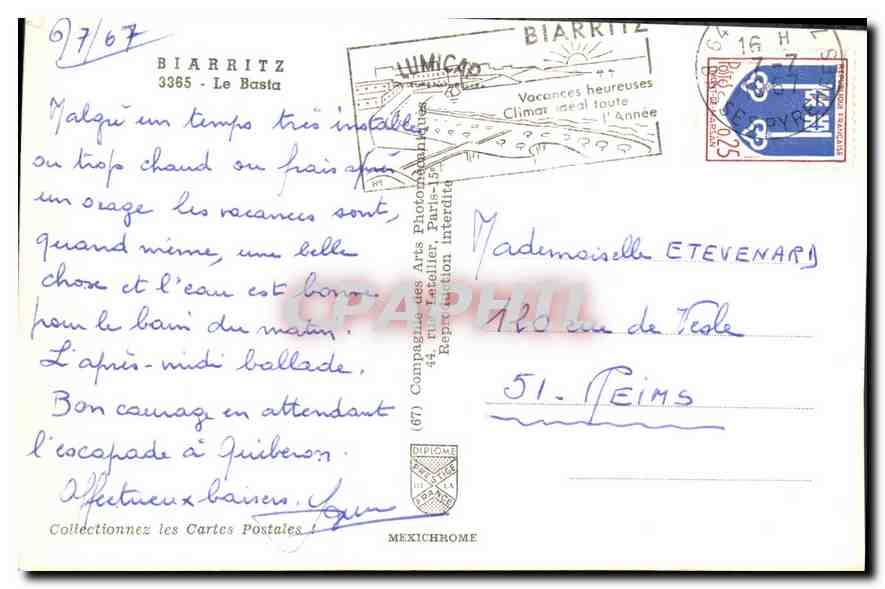 6/7/67
BIARRITZ
3365 - Le Basta
Malgré un temps très instable
ou trop chaud ou frais après
un orage les vacances sont,
quand même, une belle
chose et l'eau est bonne
pour le bain du matin.
L'après-midi ballade.
Bon courage en attendant
l'escapade à Quiberon.
Affectueux baisers.
Collectionnez les Cartes Postales !
(67) Compagnie des Arts Photomécaniques
44, rue Letellier, Paris-15e
Reproduction interdite
DIPLOME
PRESTIGE
DE LA
FRANCE
MEXICHROME
LUMICAP
BIARRITZ
Vacances heureuses
Climat idéal toute
l'Année
16 H
7-7
REPUBLIQUE FRANÇAISE
POSTES
0,25
MONT-DE-MARSAN
Mademoiselle ETEVENARD
120 rue de Vesle
51. REIMS
CPAPHIL